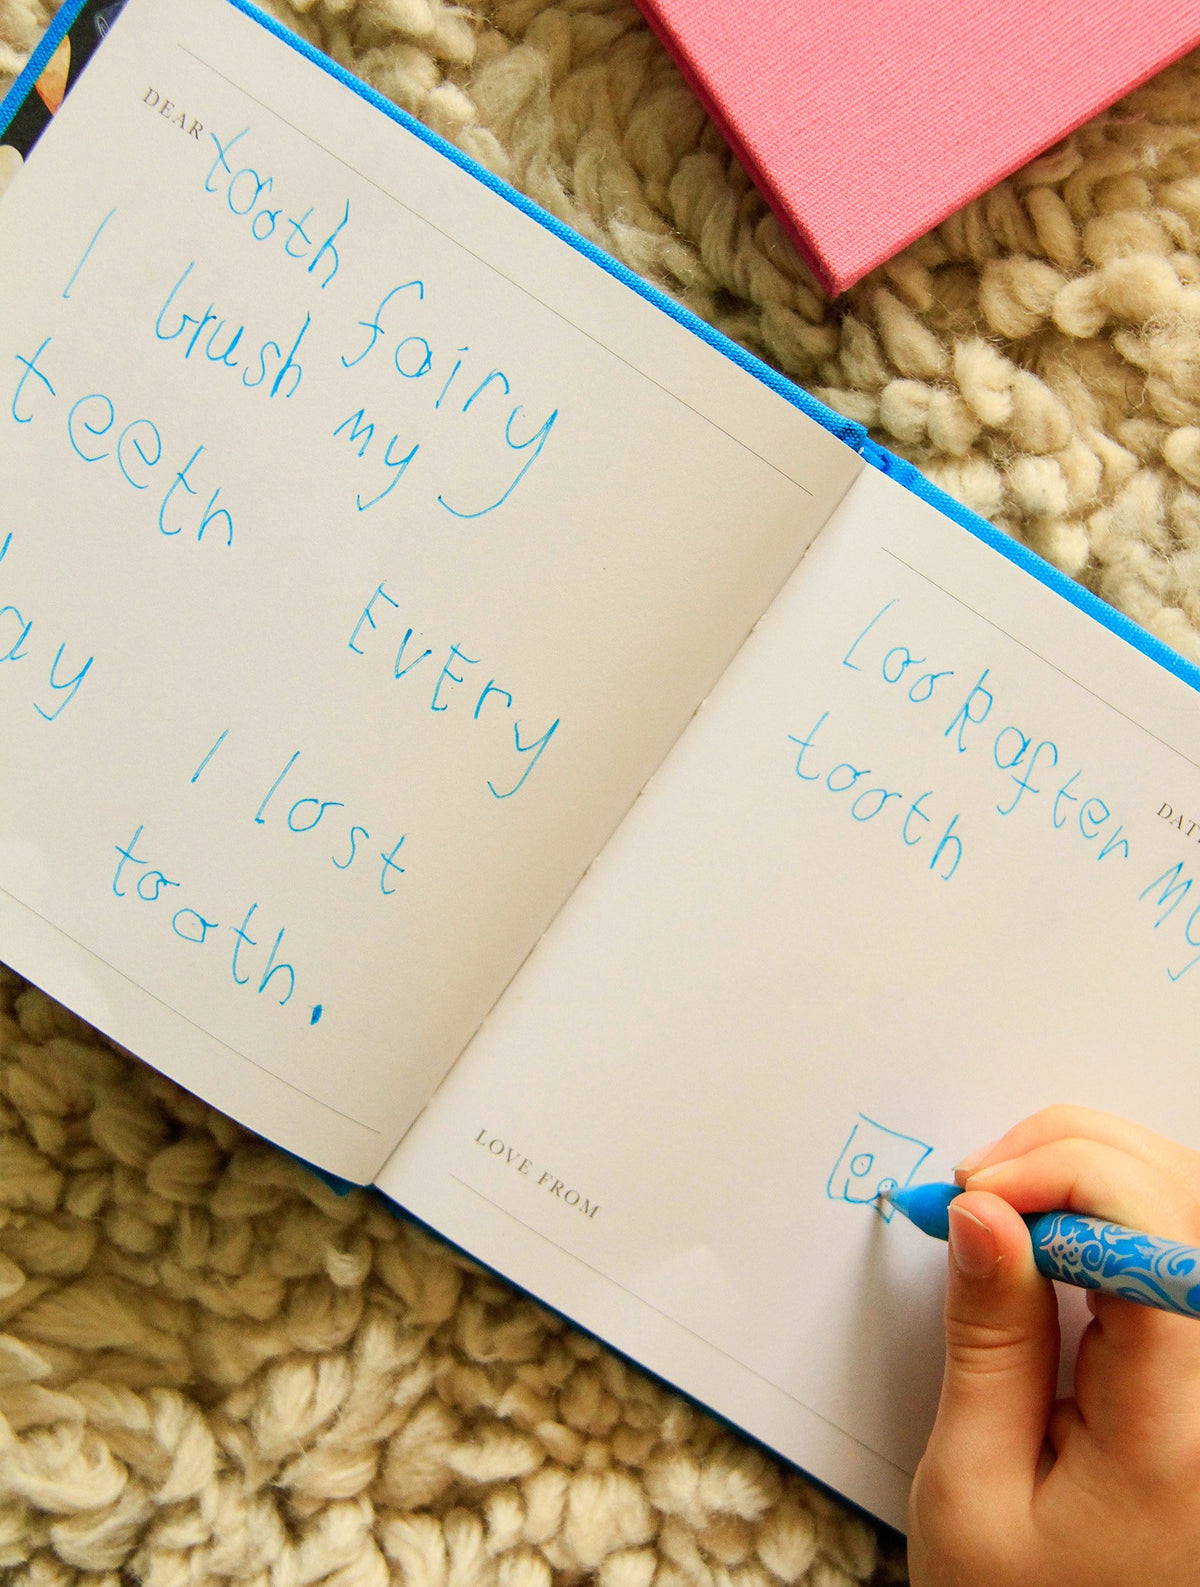 DEAR tooth fairy
I brush my
teeth EvEry
day I lost
tooth.
DAT
Look after My
tooth
LOVE FROM